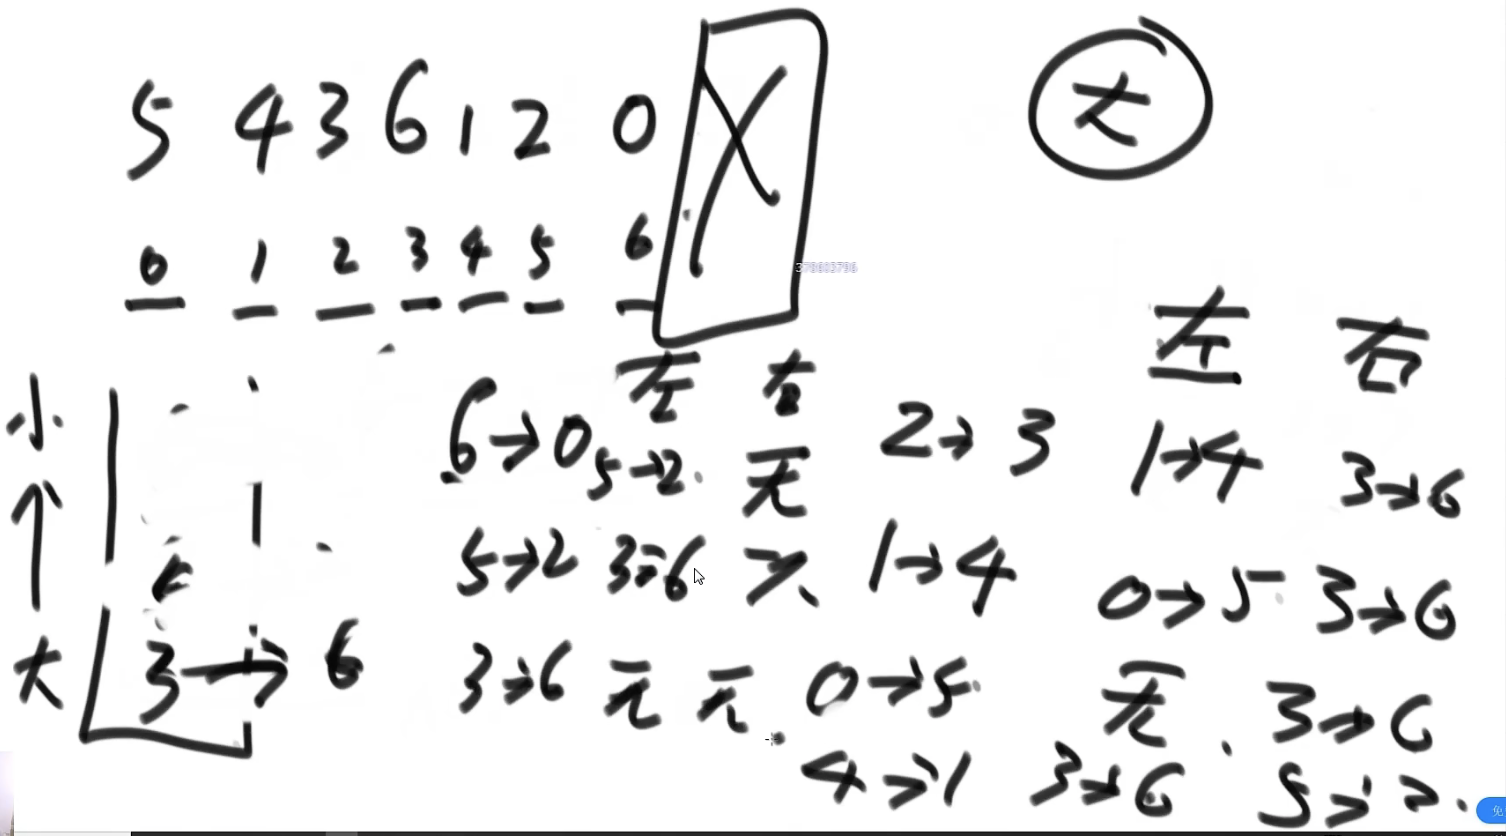 5 4 3 6 1 2 0
大
0 1 2 3 4 5 6
378603796
左 右
左 右
小
6→0 5→2 无
2→3 1→4 3→6
5→2 3→6 无
1→4 0→5 3→6
大
3→6
3→6 无 无
0→5 无 3→6
4→1 3→6 5→2